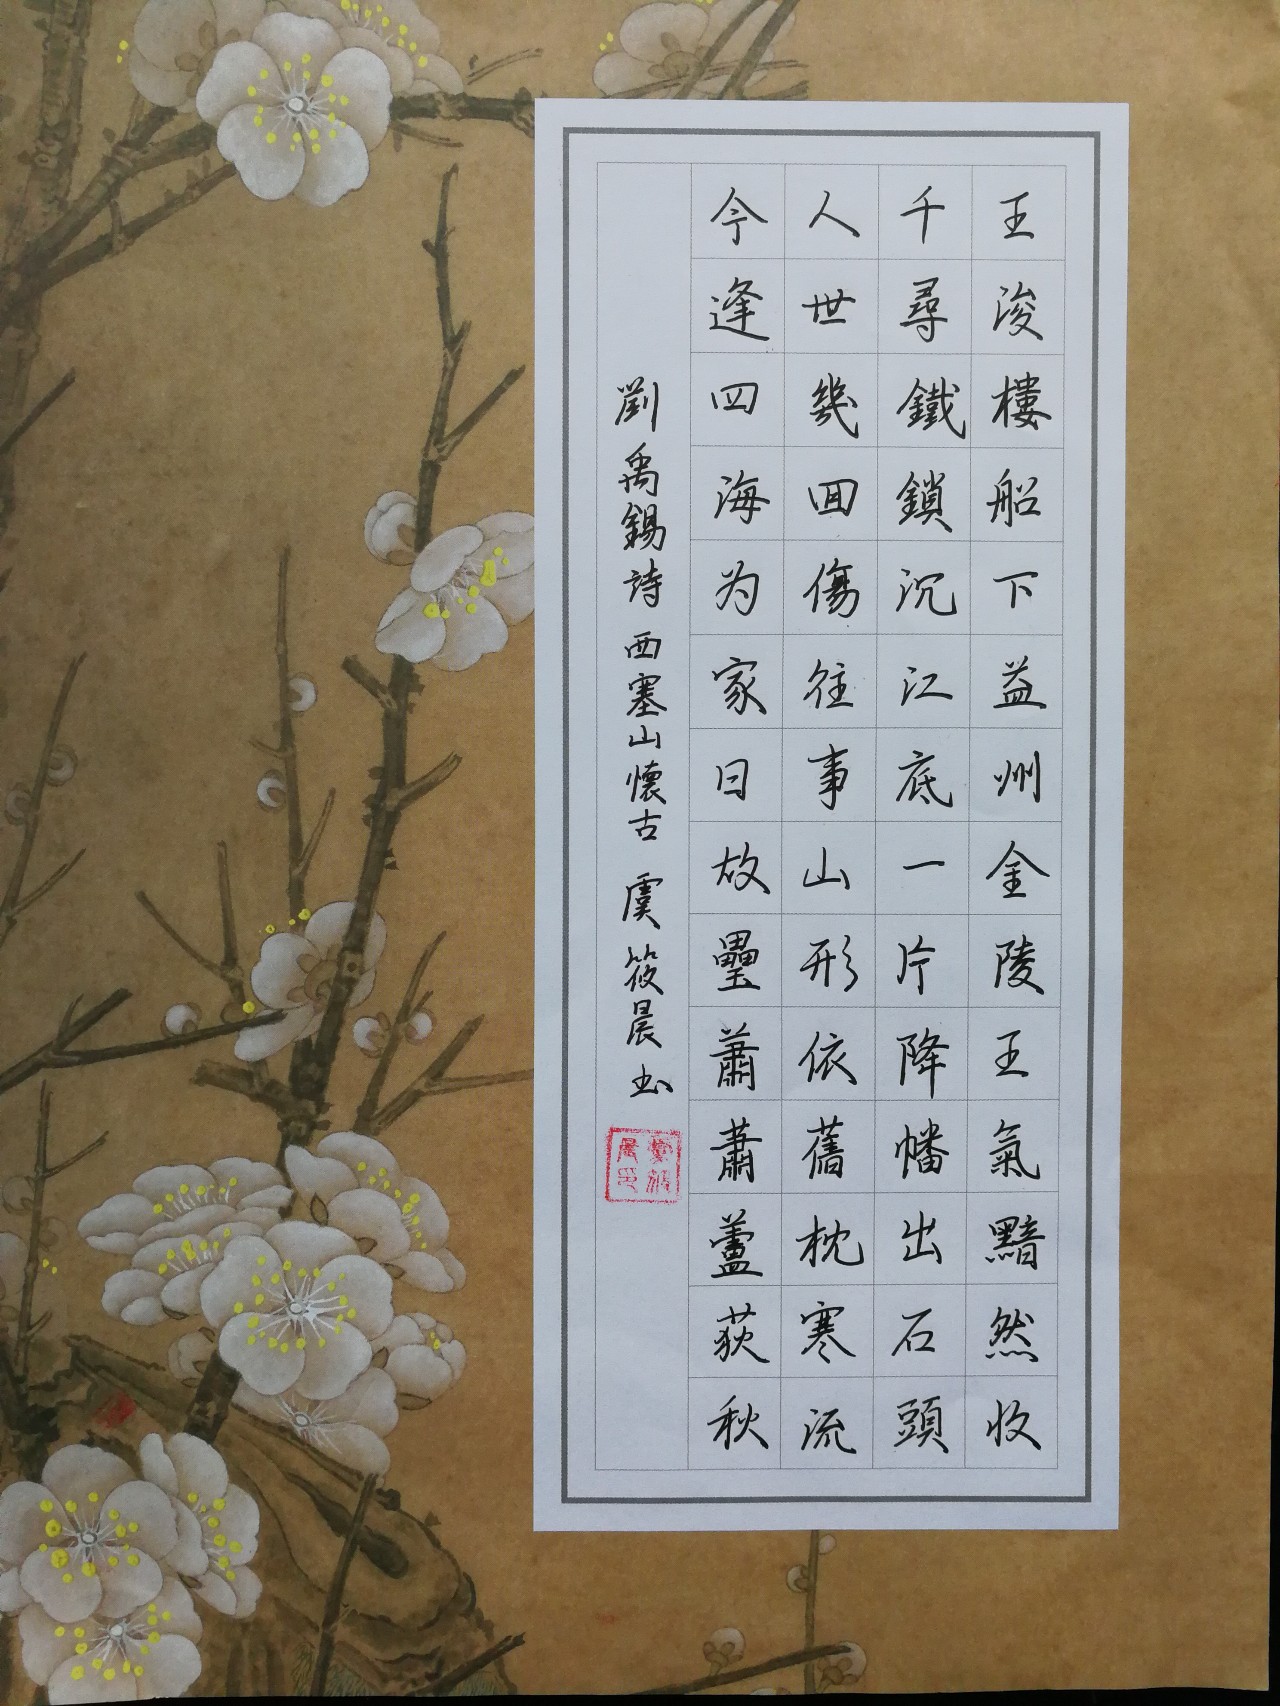 王浚樓船下益州金陵王氣黯然收
千尋鐵鎖沉江底一片降幡出石頭
人世幾回傷往事山形依舊枕寒流
今逢四海为家日故壘蕭蕭蘆荻秋
劉禹錫詩西塞山懷古虞筱晨书